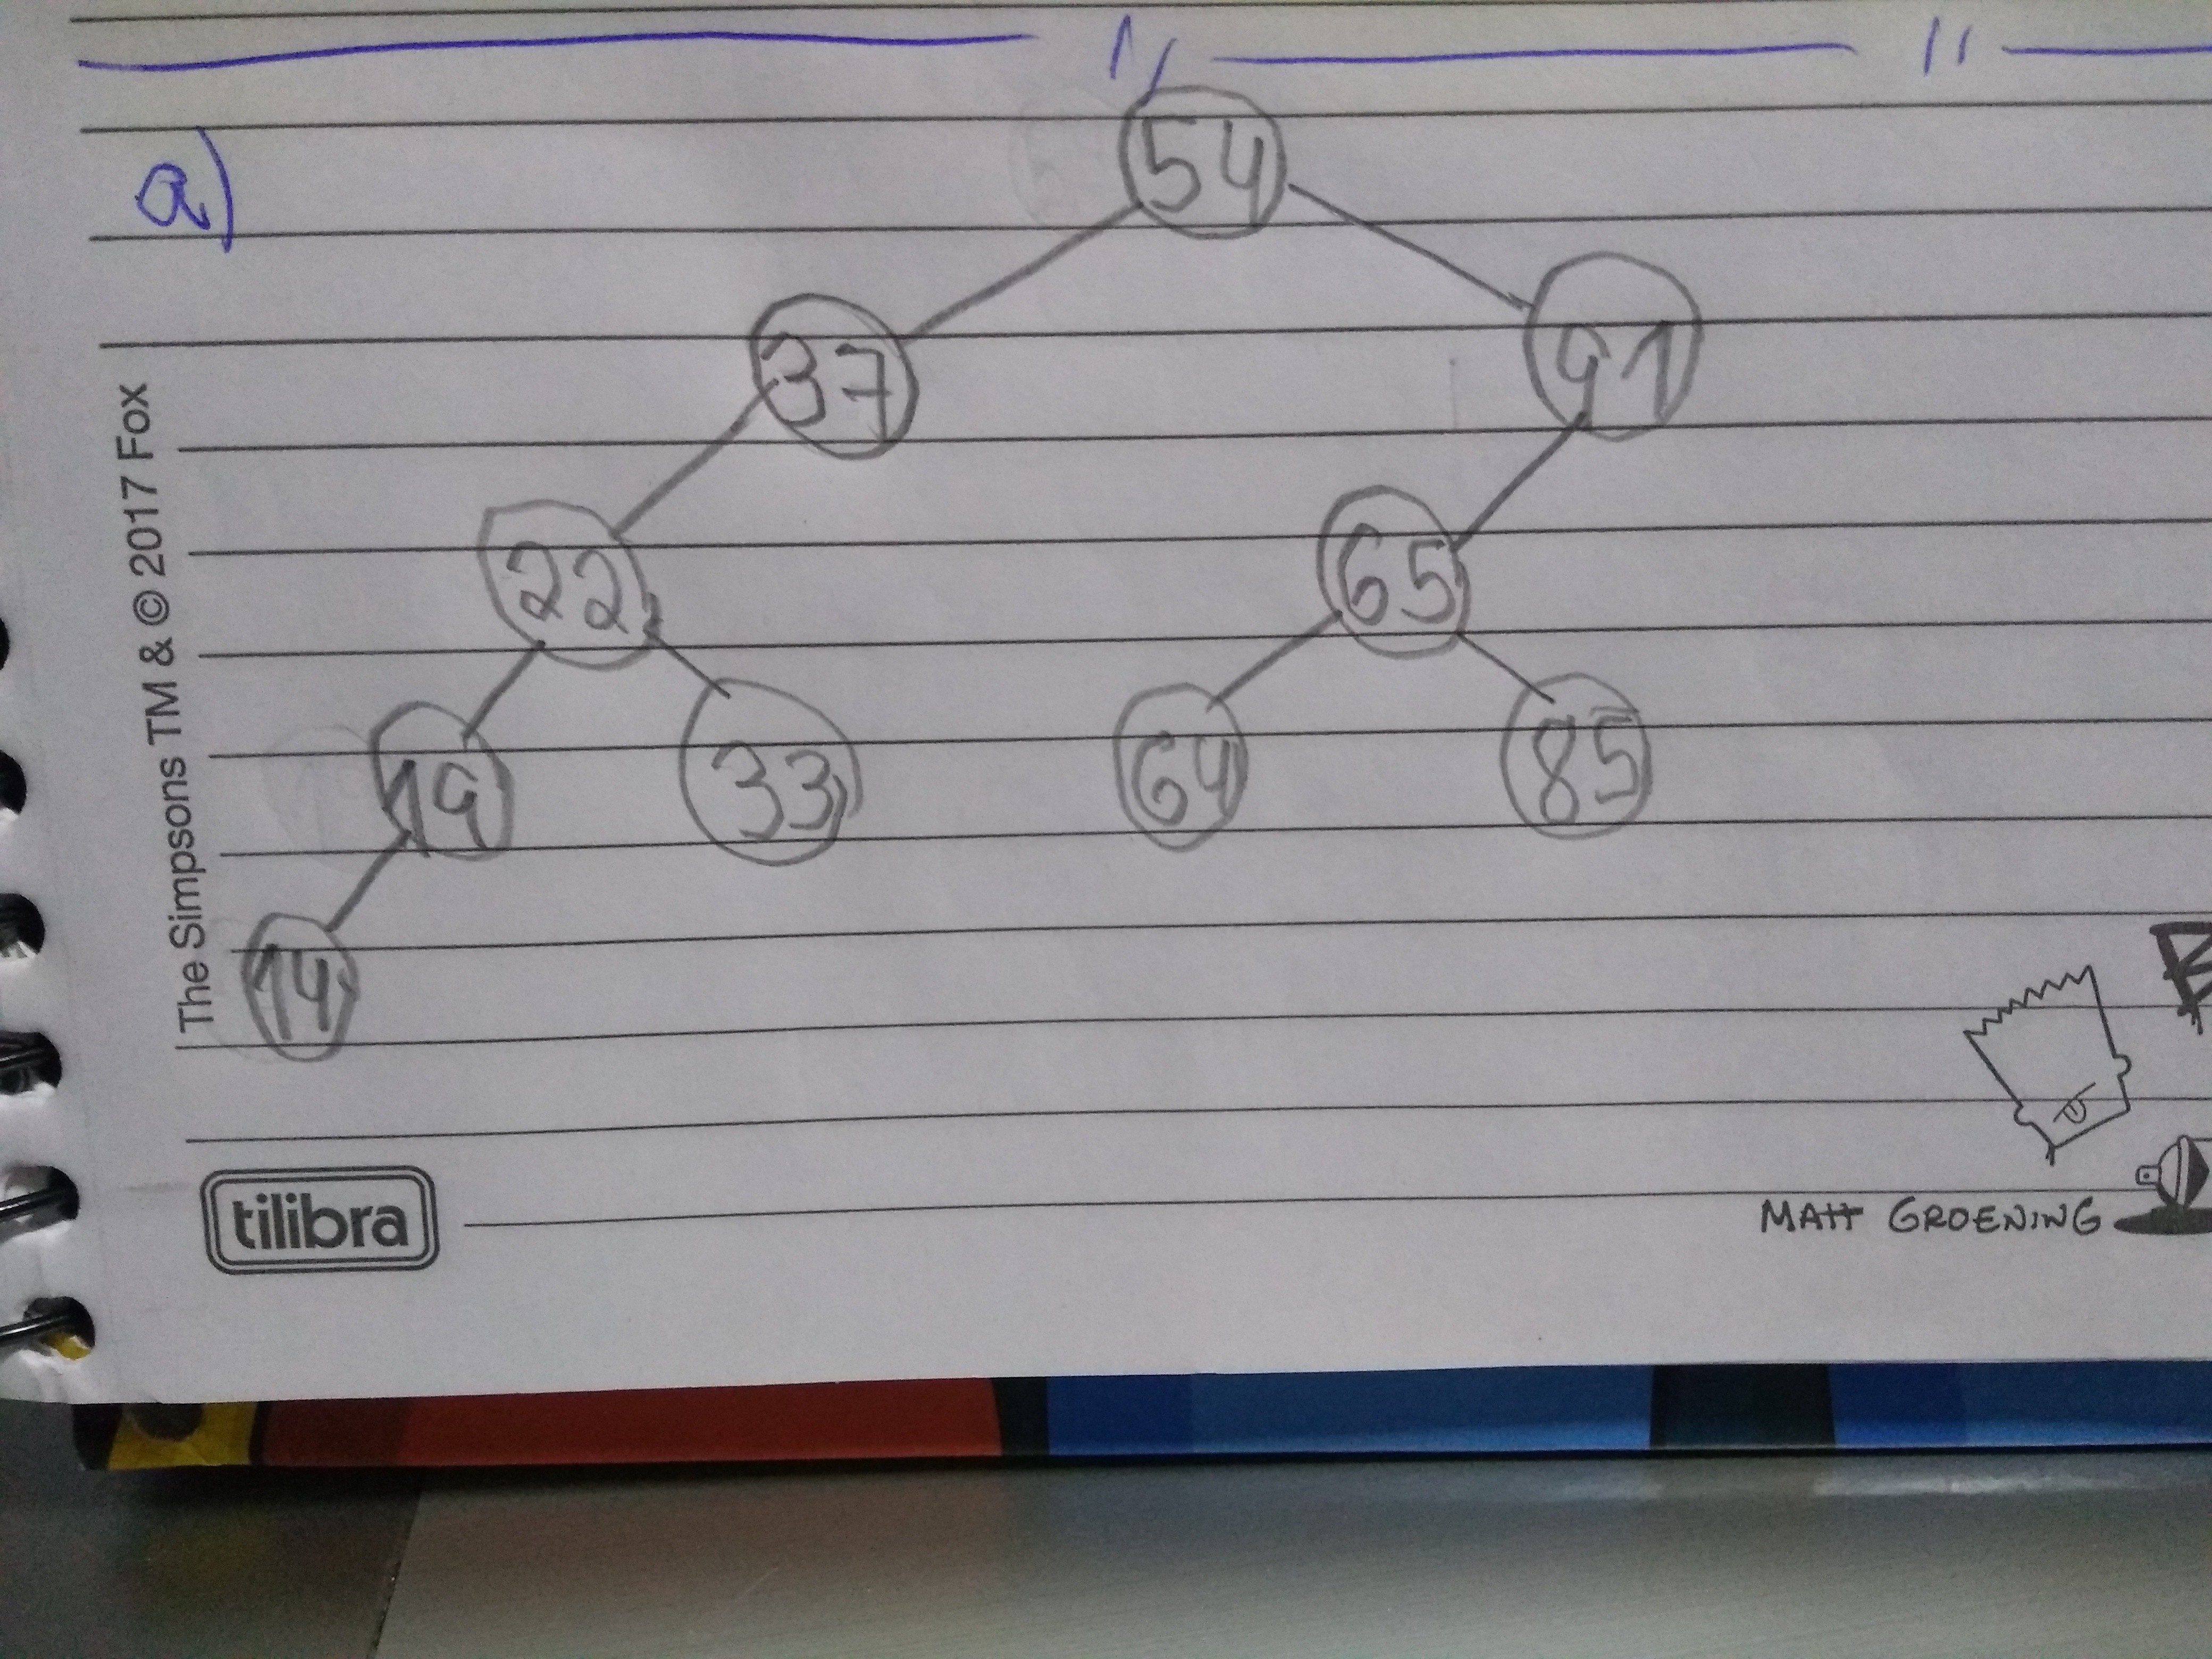 a)
54
37
91
22
65
19
33
64
85
14
The Simpsons TM & © 2017 Fox
tilibra
MATT GROENING